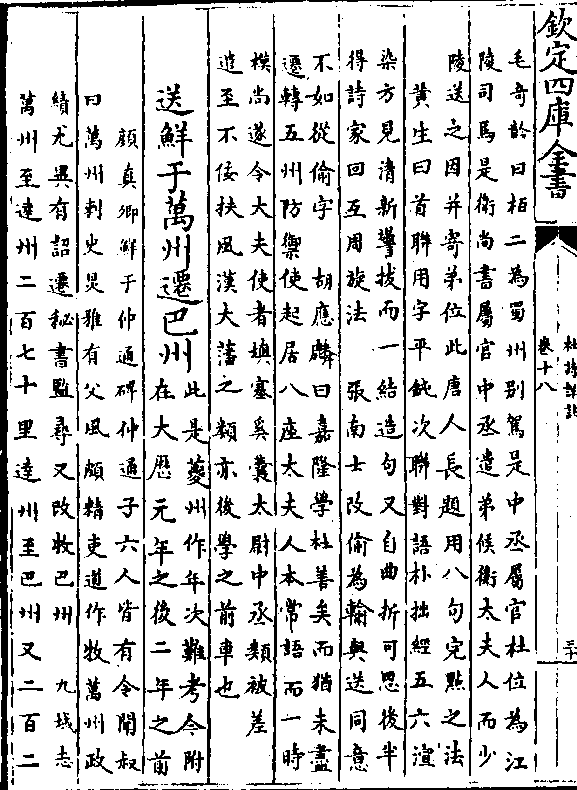 欽定四庫全書
杜詩詳註
卷十八
三十
毛奇齡曰栢二為蜀州别駕是中丞屬官杜位為江
陵司馬是衛尚書屬官中丞遣弟候衛太夫人而少
陵送之因并寄弟位此唐人長題用八句完點之法
黄生曰首聯用字平鈍次聯對語朴拙經五六渲
染方見清新警拔而一結造句又自曲折可思後半
得詩家回互周旋法 張南士改偷為輸與送同意
不如從偷字 胡應麟曰嘉隆學杜善矣而猶未盡
遷轉五州防禦使起居八座太夫人本常語而一時
模尚遂令大夫使者填塞奚囊太尉中丞類被差
遣至不佞扶風漢大藩之類亦後學之前車也
送鮮于萬州遷巴州
此是䕫州作年次難考今附
在大歴元年之後二年之前
顔真卿鮮于仲通碑仲通子六人皆有令聞叔
曰萬州刺史炅雅有父風頗精吏道作牧萬州政
績尤異有詔遷秘書監尋又改牧巴州 九域志
萬州至達州二百七十里達州至巴州又二百二